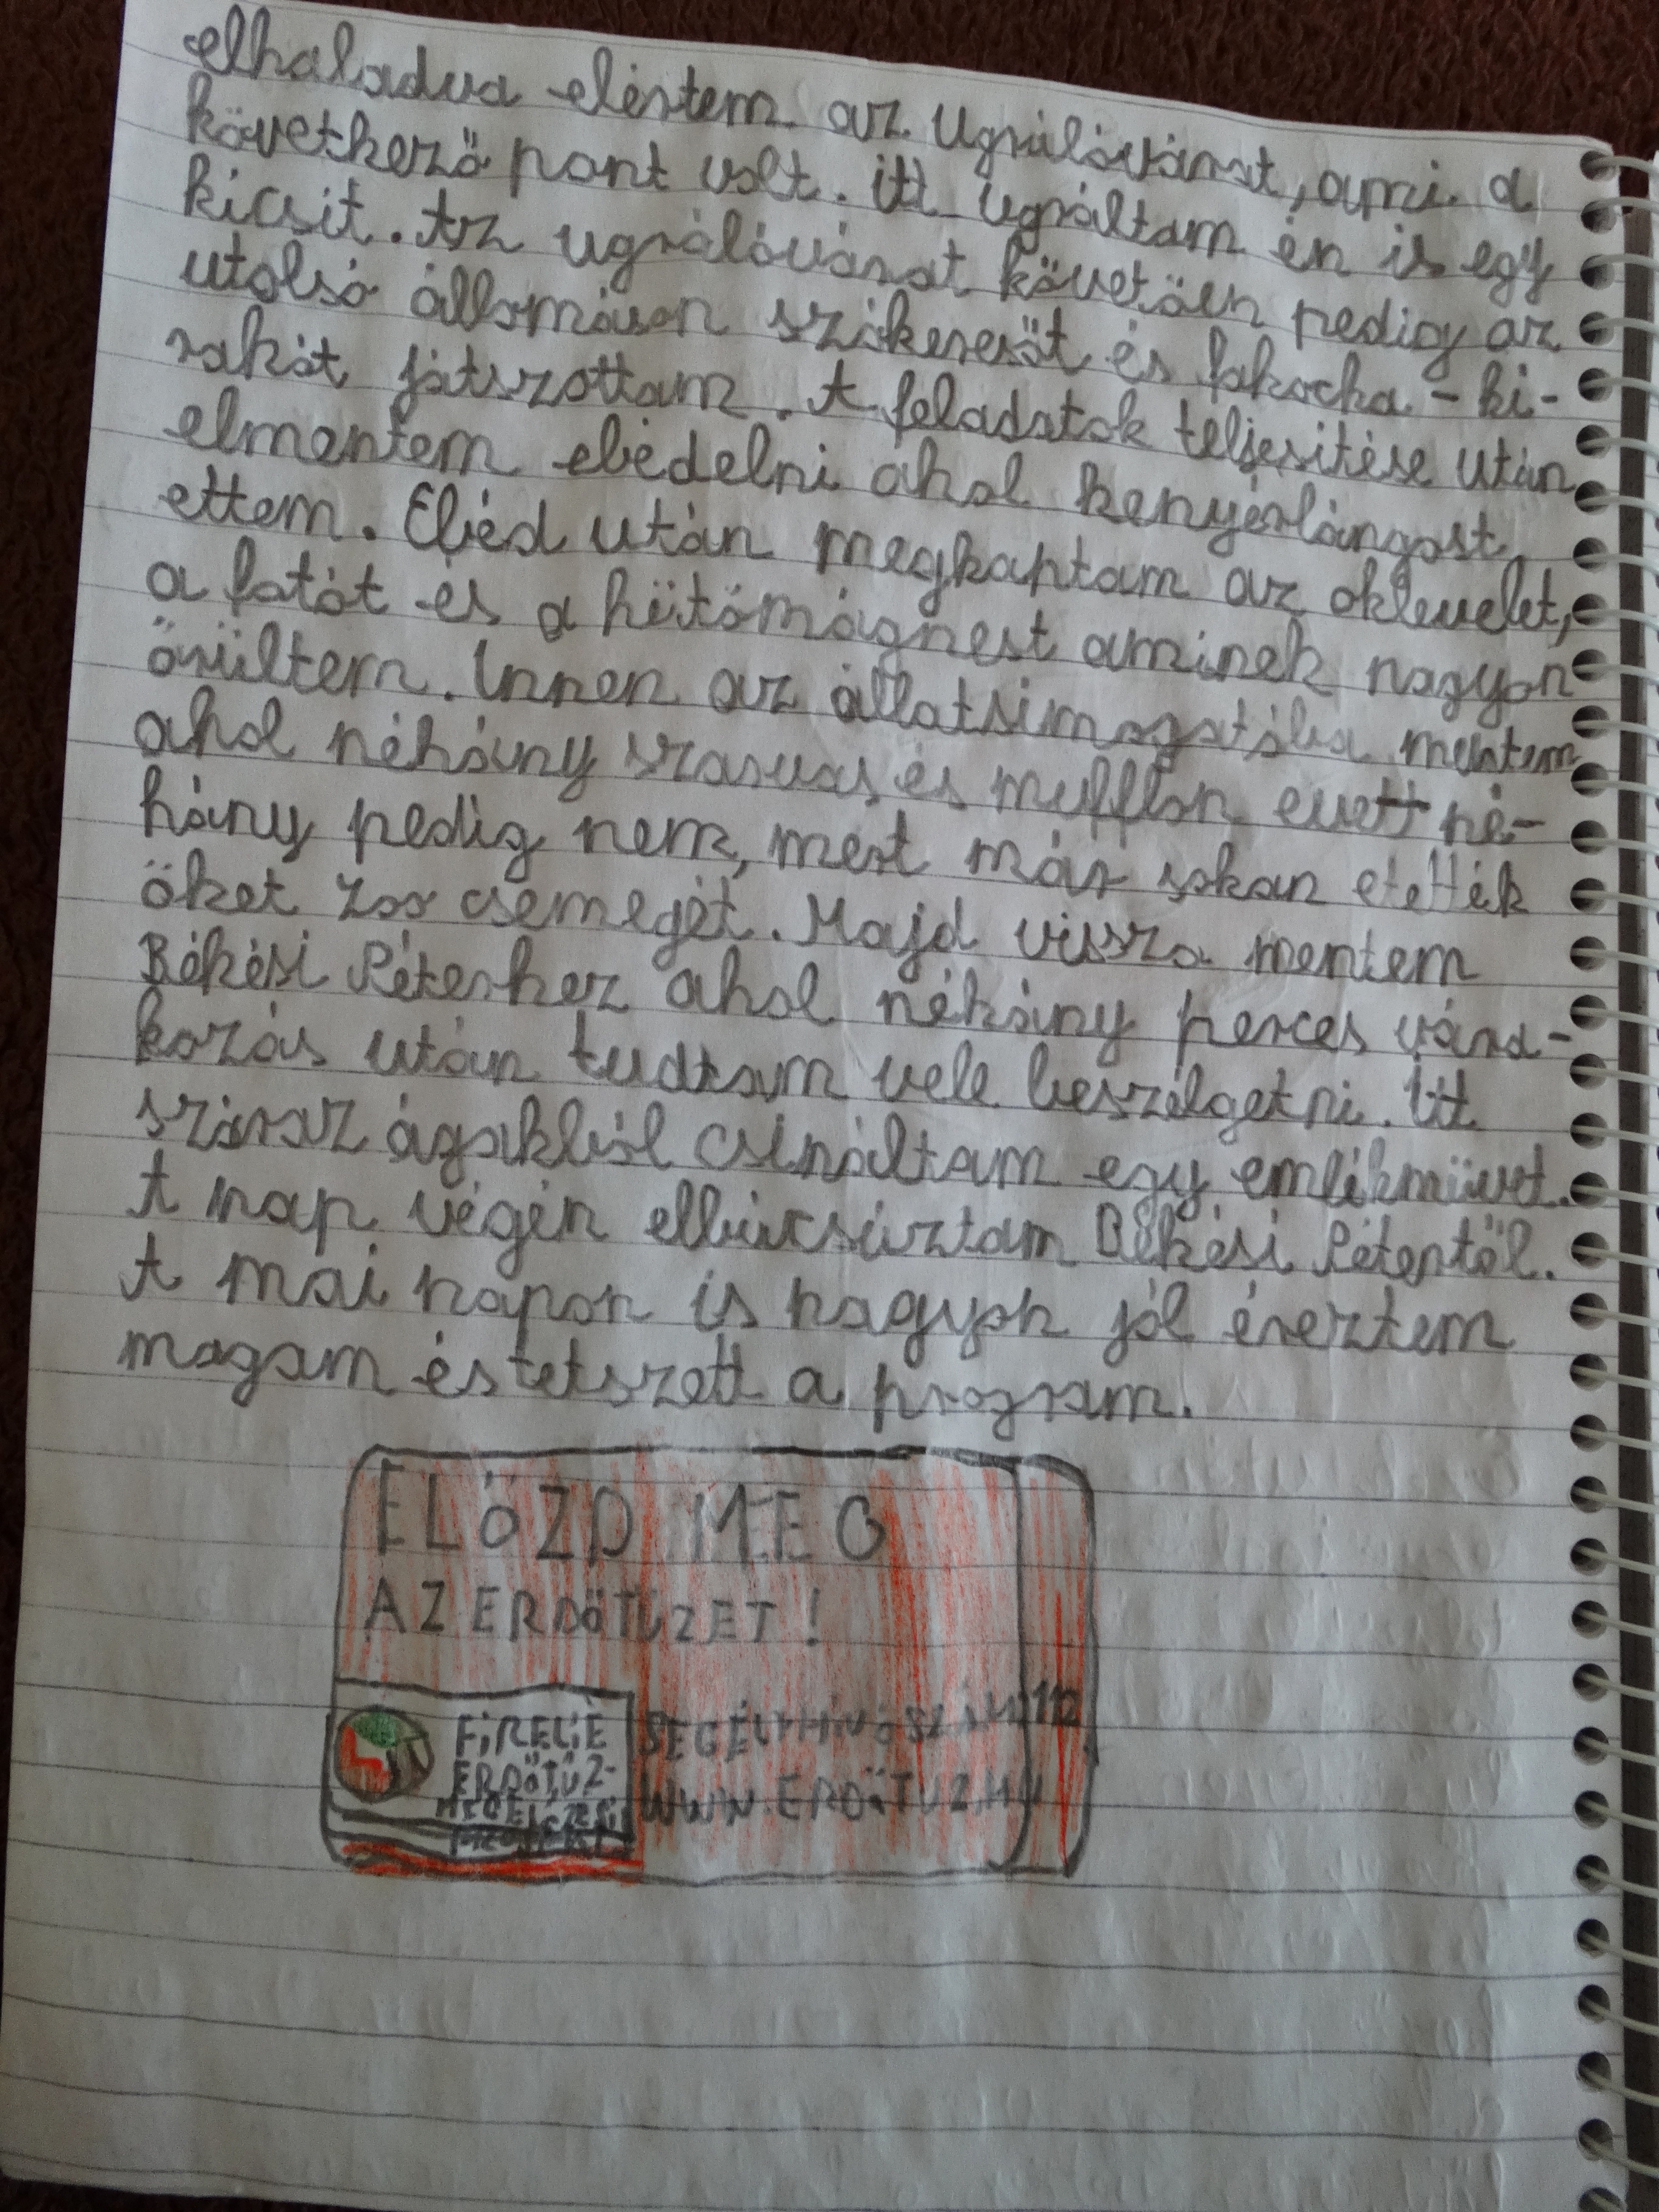 elhaladva elértem az Ugrálóvárat, ami a
következő pont volt. itt ugráltam én is egy
kicsit. Az ugrálóvárat követően pedig az
utolsó állomáson szókeresőt és fakocka - ki-
rakót játszottam. A feladatok teljesítése után
elmentem ebédelni ahol kenyérlángost
ettem. Ebéd után megkaptam az oklevelet,
a fotót és a hűtőmágnest aminek nagyon
örültem. Innen az állatsimogatóba mentem
ahol néhány szarvas és mufflon evett né-
hány pedig nem, mert már sokan etették
őket zoo csemegét. Majd vissza mentem
Békési Péterhez ahol néhány perces vára-
kozás után tudtam vele beszélgetni. Itt
száraz ágakból csináltam egy emlékművet.
A nap végén elbúcsúztam Békési Pétertől.
A mai napon is nagyon jól éreztem
magam és tetszett a program.
ELŐZD MEG
AZ ERDŐTÜZET!
FIRELIFE
ERDŐTŰZ-
MEGELŐZÉSI
SEGÉLYHÍVÓSZÁM 112
WWW.ERDŐTUZ.HU